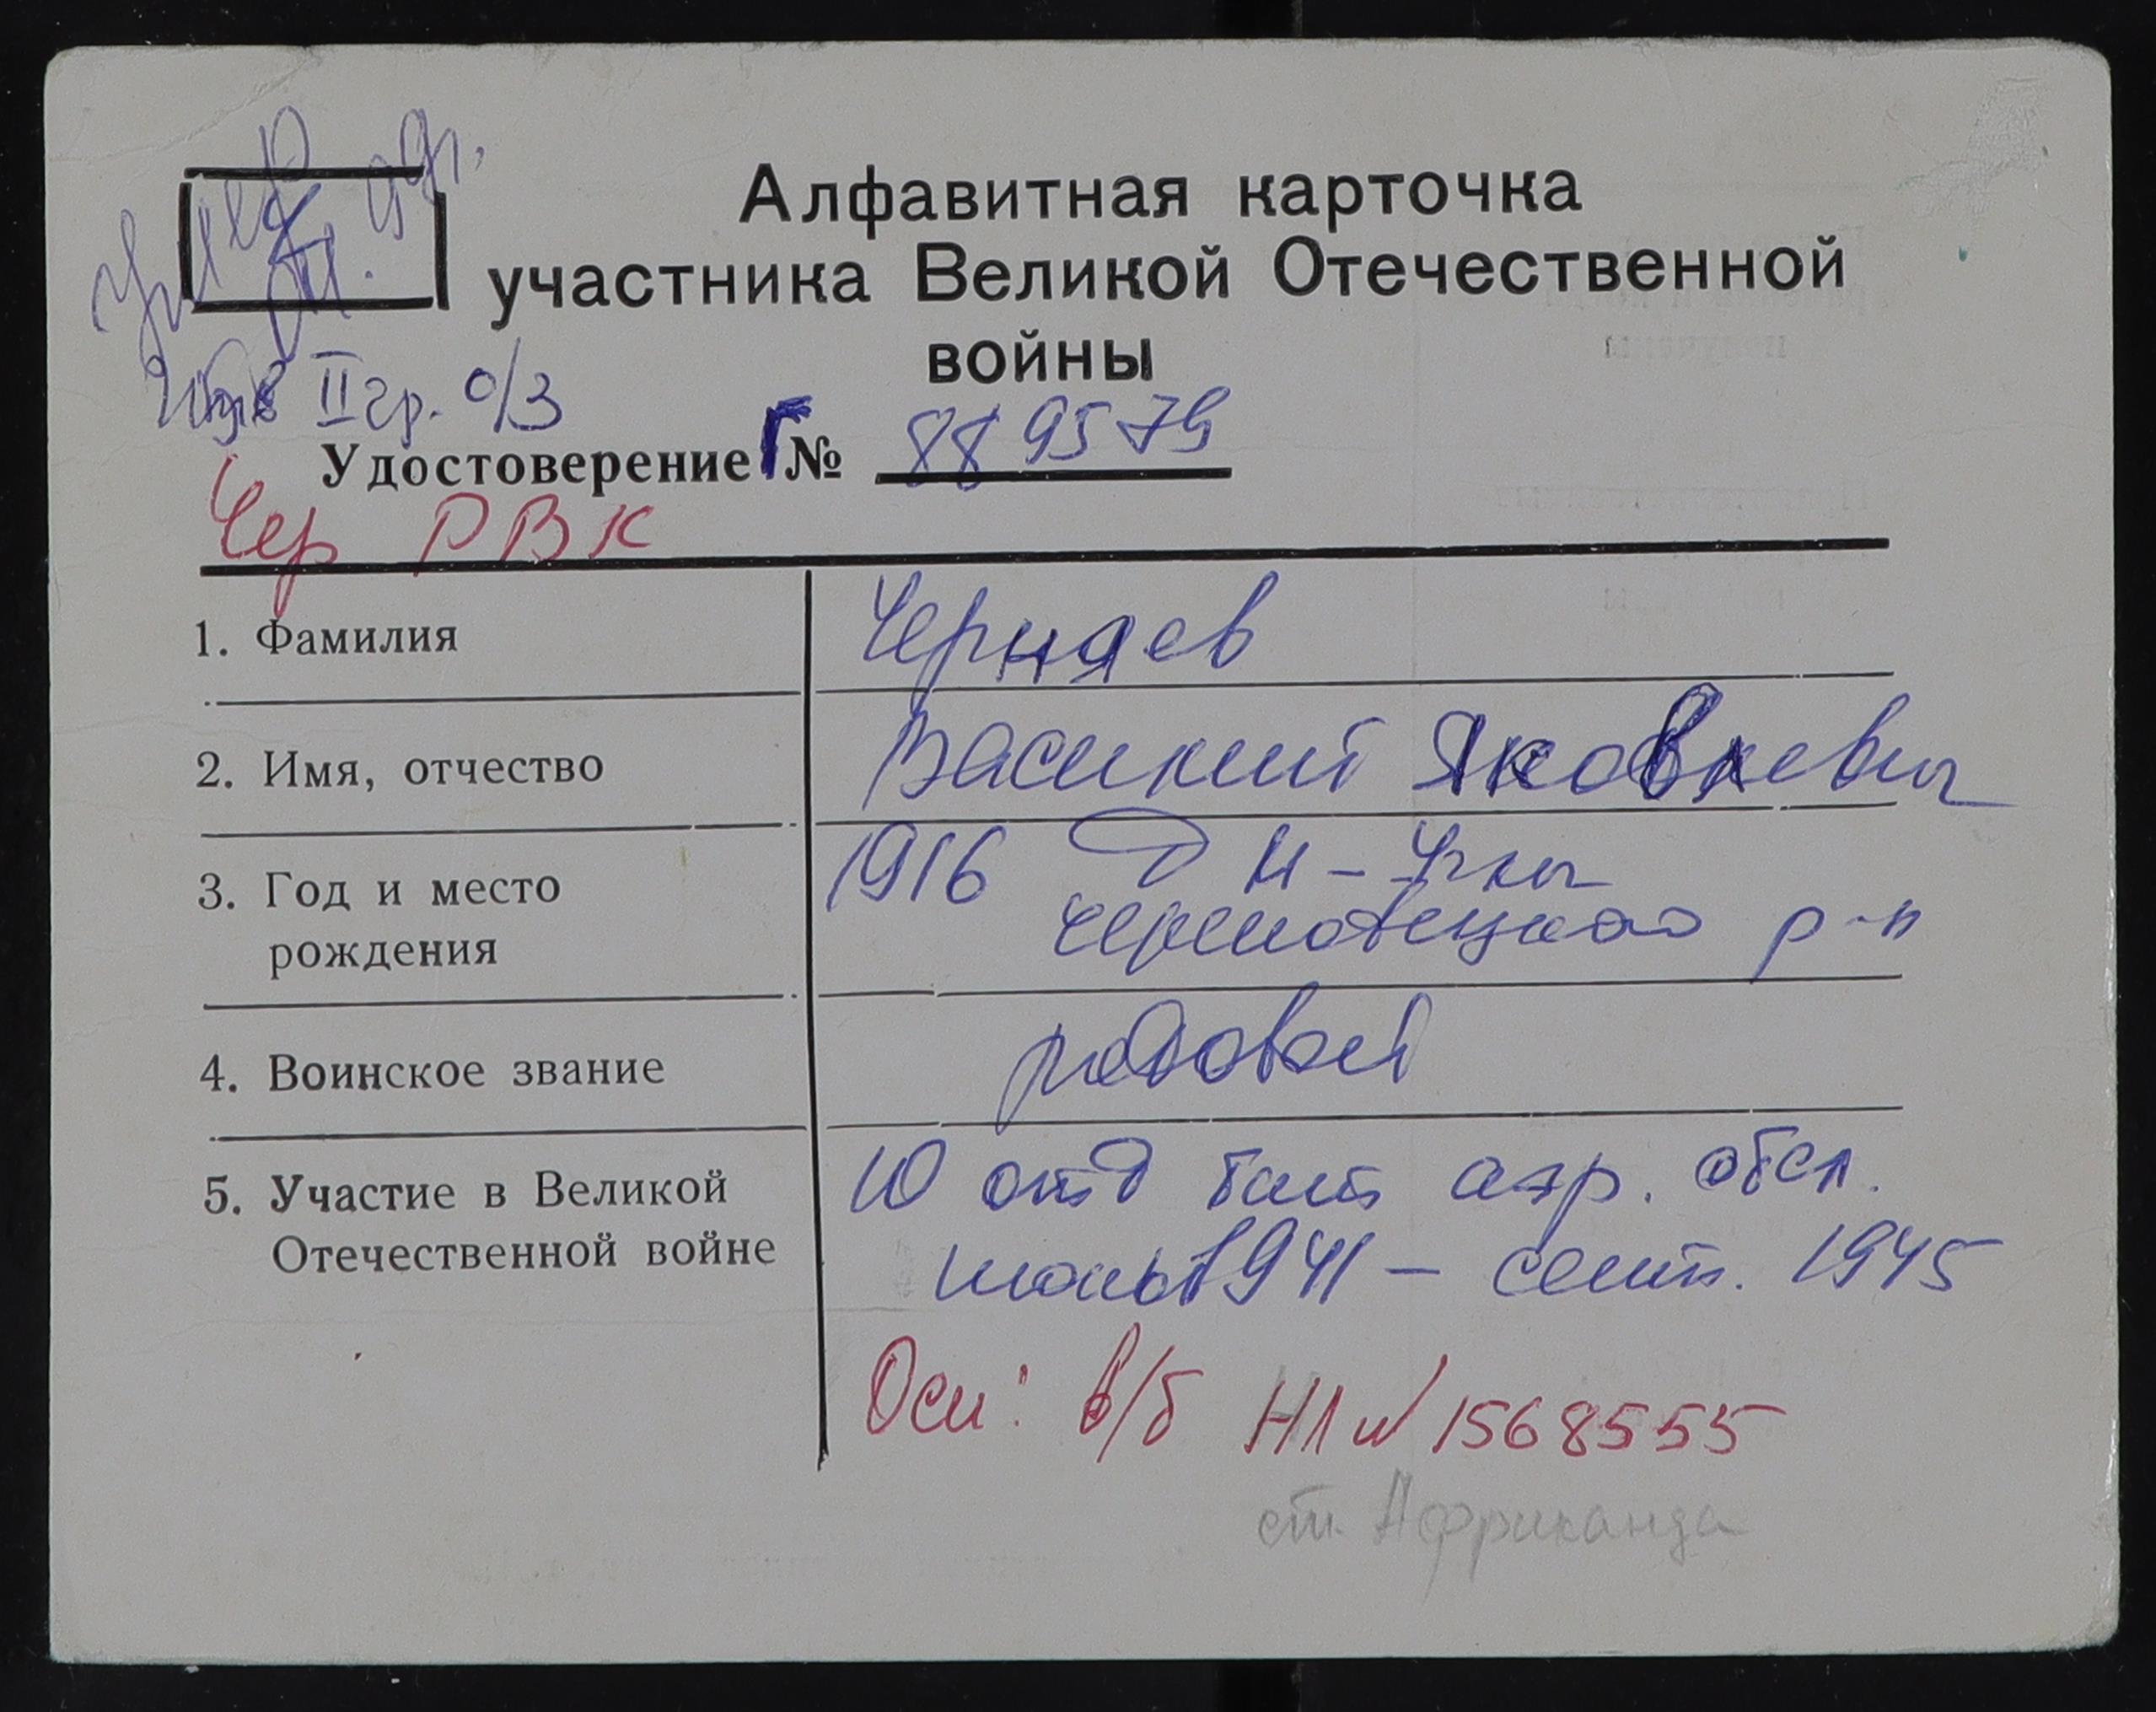 умер
99г.
Алфавитная карточка
участника Великой Отечественной
войны
Инв II гр. о/з
Удостоверение Г № 889579
Чер РВК
1. Фамилия
Черняев
2. Имя, отчество
Василий Яковлевич
3. Год и место
рождения
1916 д
Череповецкого р-н
4. Воинское звание
рядовой
5. Участие в Великой
Отечественной войне
10 отд бат аэр. обсл.
июнь 1941 – сент. 1945
Осн: в/б НЛ № 1568555
ст. Африканда